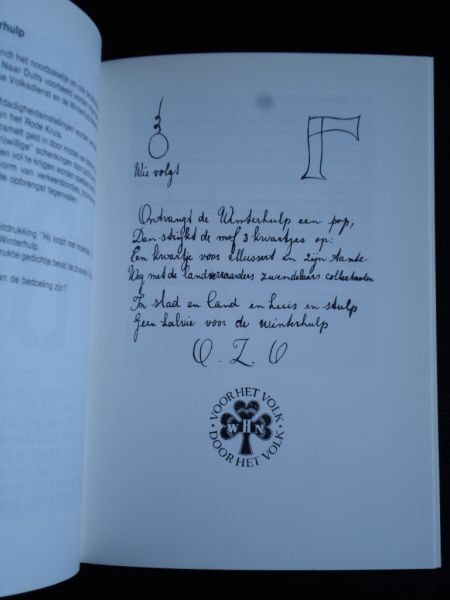 rhulp
ndt het noodzakelijk om ook de
Naar Duits voorbeeld worden
e Volksdienst en de
fdadigheidsinstellingen worden
n het Rode Kruis.
zamelt geld in door middel van
rijwillige" schenkingen door
en vol te krijgen worden
orm van verkeersborden,
de opbrengst tegenvallen.
itdrukking "Hij loopt met
Winterhulp.
rukte gedichtje bevat de
an de bedoeling zijn?
F
Wie volgt
Ontvangt de Winterhulp een pop,
Dan strijkt de mof 3 kwartjes op:
Een kwartje voor Mussert en zijn tante
Weg met de landverraarders zwendelaars collectanten
In stad en land en huis en stulp
Geen halvie voor de winterhulp
O. Z. O
· VOOR HET VOLK ·
WHN
DOOR HET VOLK